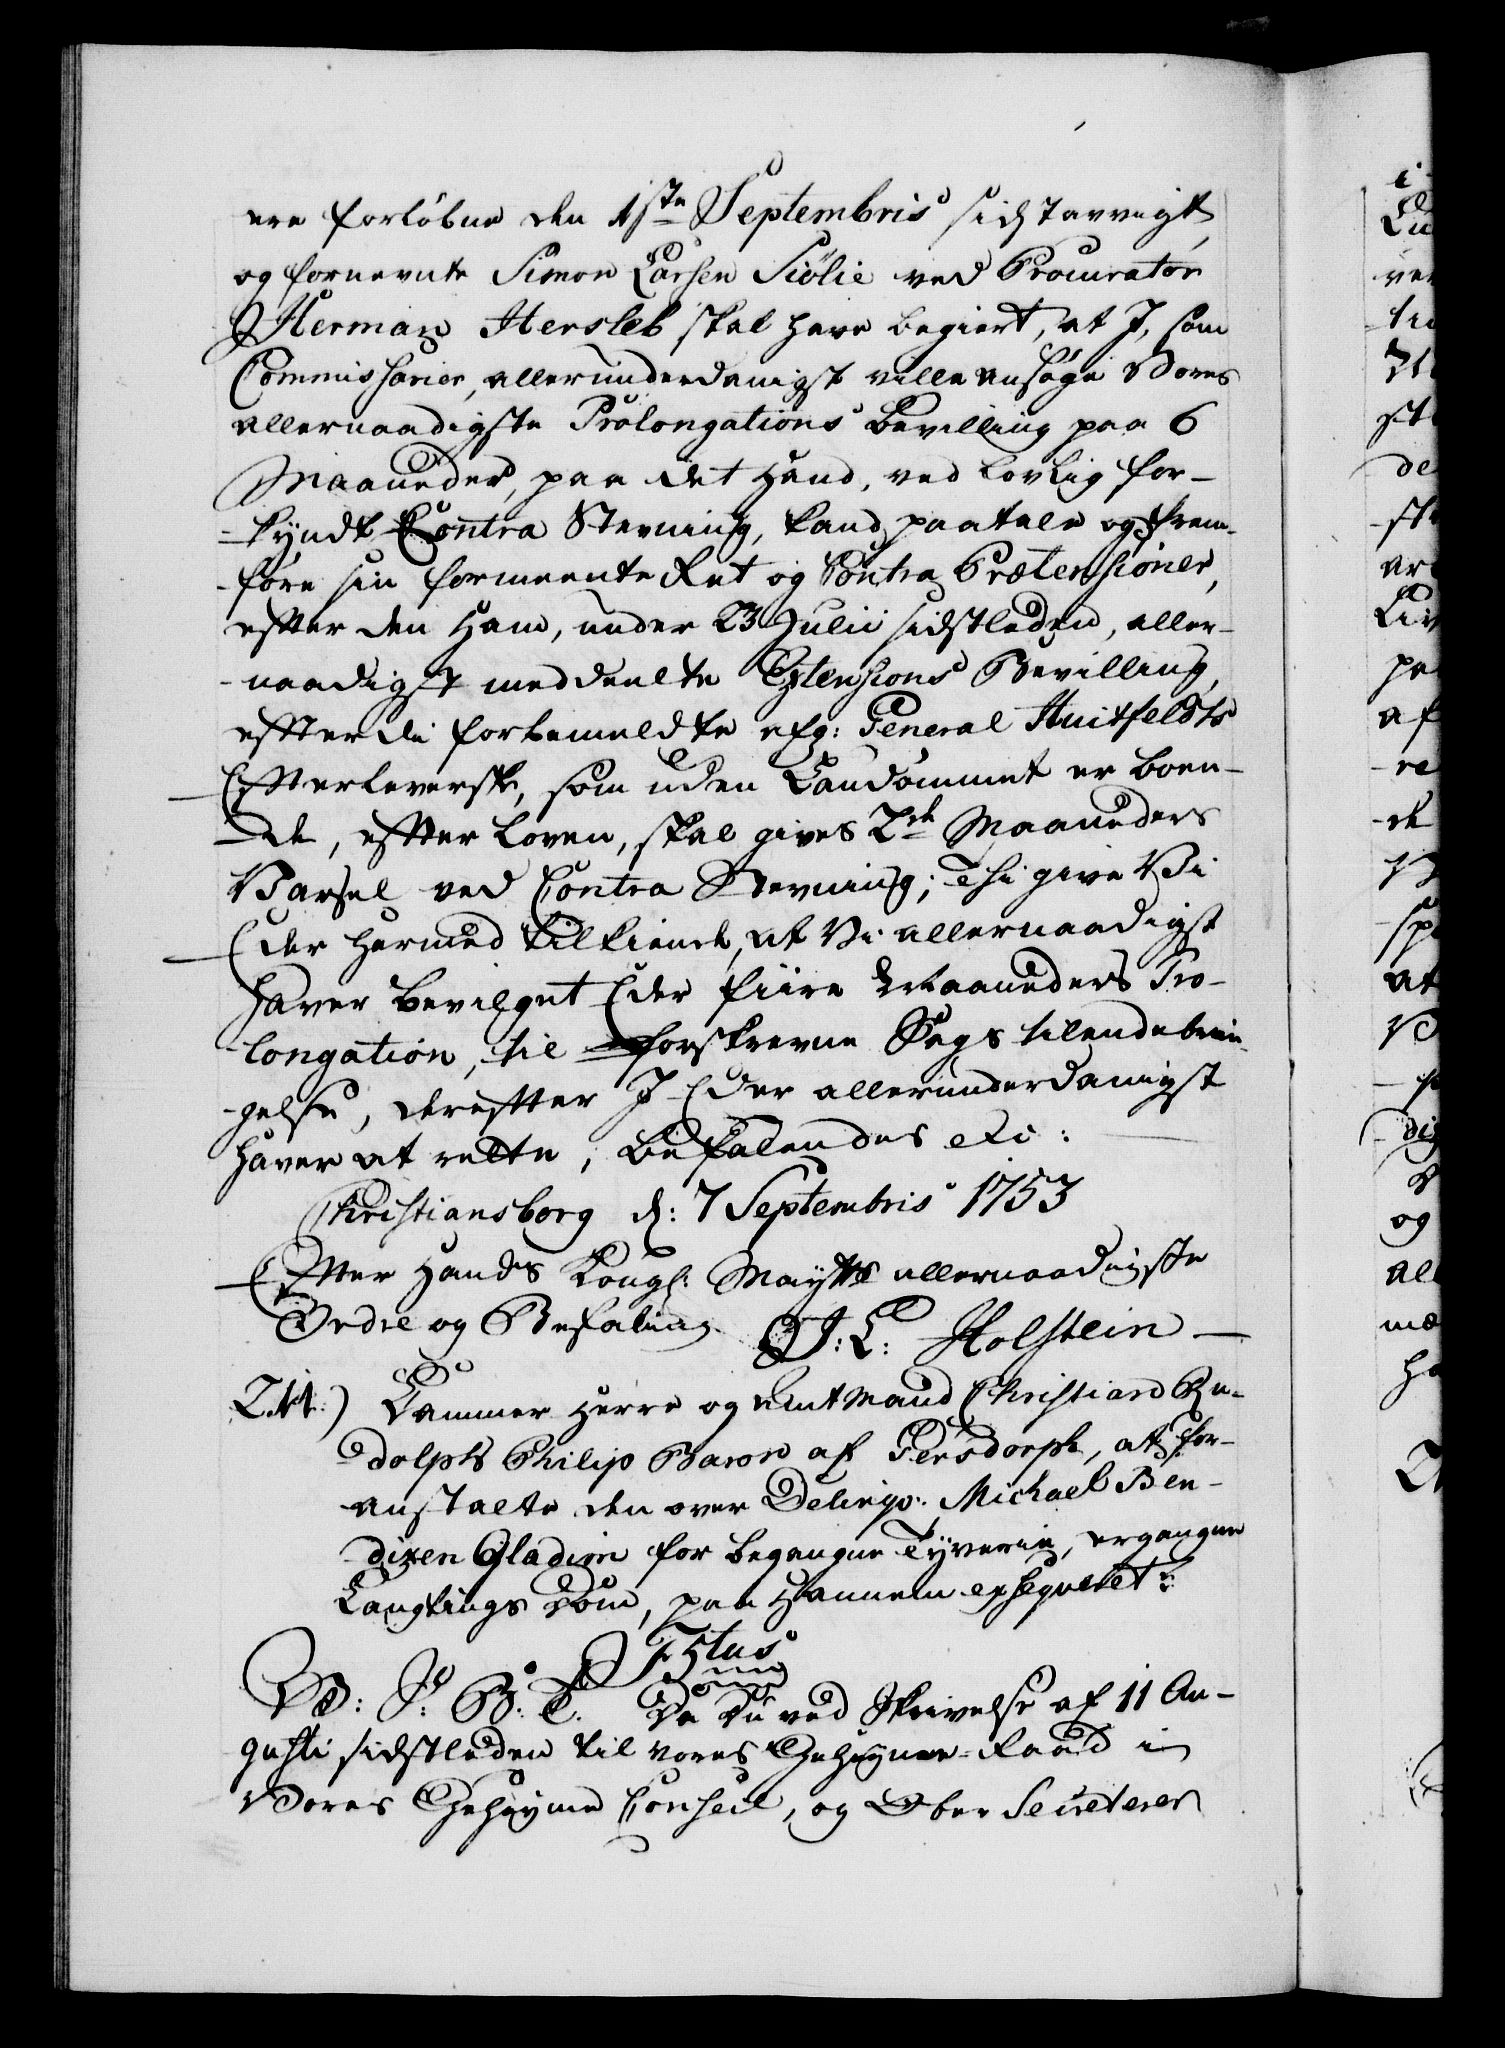 ere forløbne den 1ste Septembris sidstavvigt,
og fornevnte Simon Larsen Siølie ved Procurator
Herman Hersleb skal have begiert, at I, som
Commissarier, allerunderdanigst ville ansøge Vores
allernaadigste Prolongations Bevilling paa 6
Maaneder, paa det Hand, ved lovlig for-
-kyndt Contra Stevning, kand paatale og frem-
-føre sin formeente Ret og Contra Prætensioner,
efter den Ham, under 23 Julii sidstleden, aller-
-naadigst meddeelte Extensions Bevilling,
efterdi forbemeldte afg: General Huitfeldts
Efterleverske, som uden Landommet er boen-
-de, efter Loven, skal gives 2de Maaneders
Varsel ved Contra Stevning; Thi give Vi
Eder hermed tilkiende, at Vi allernaadigst
haver bevilget Eder fiire Maaneders Pro-
-longation, til forskrevne Sags tilendebrin-
-gelse, derefter I Eder allerunderdanigst
haver at rette, Befalendes etc:
Christiansborg d: 7 Septembris 1753
Efter Hands Kongl: Maytts allernaadigste
Ordre og Befaling. J: L: Holstein
241:) Kammer Herre og Amtmand Christian Ru-
dolph Philip Baron af Gersdorph, at for-
anstalte den over Delinqv: Michael Ben-
dixen Gladiin for begangne Tyverie, ergangne
Langtings Dom, paa Hannem exseqveret.
F 5tus
V: G: B: T. Da Du ved Skrivelse af 11 Au-
gusti sidstleden til vores Geheyme-Raad i
Vores Geheyme Conseil, og Ober Secreterer